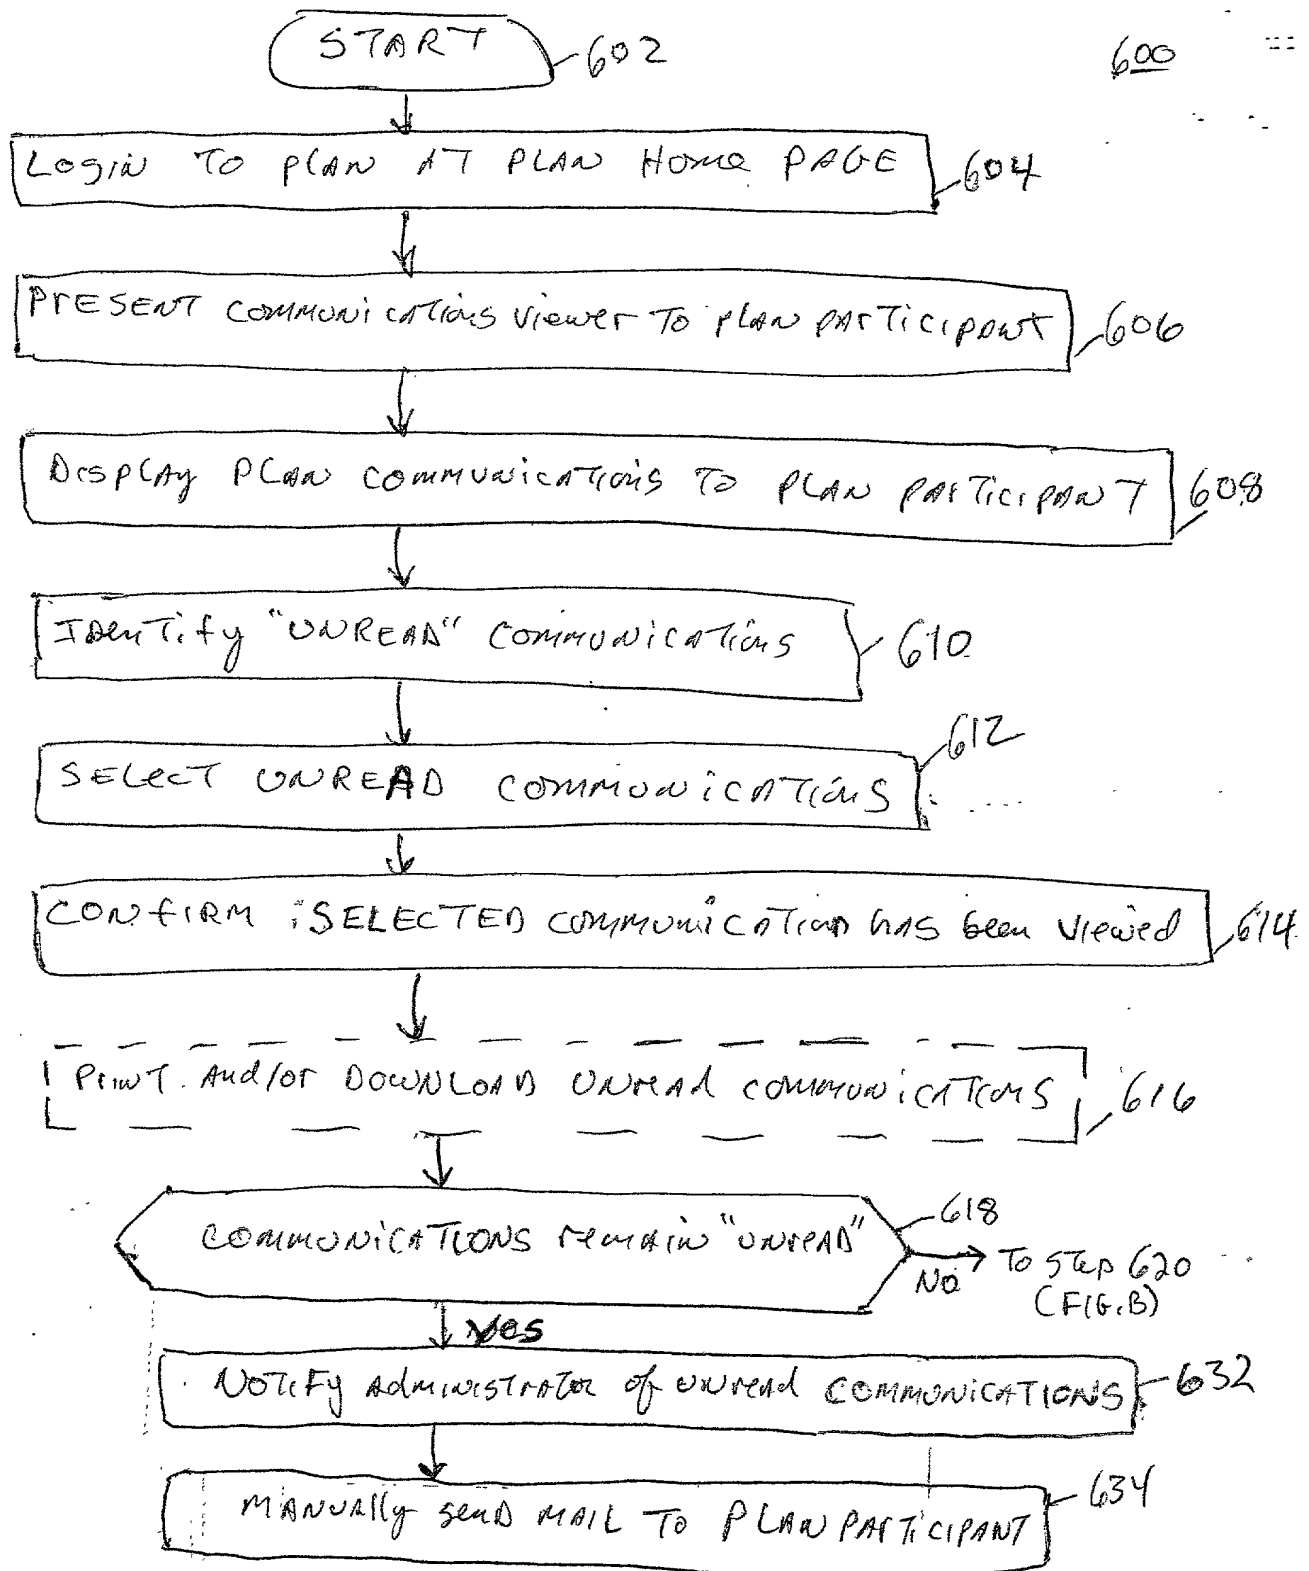 START
602
600
Login TO PLAN AT PLAN HOME PAGE
604
PRESENT COMMUNICATIONS VIEWER TO PLAN PARTICIPANT
606
DISPLAY PLAN COMMUNICATIONS TO PLAN PARTICIPANT
608
IDENTIFY "UNREAD" COMMUNICATIONS
610
612
SELECT UNREAD COMMUNICATIONS
CONFIRM SELECTED COMMUNICATION HAS been Viewed
614
PRINT And/or DOWNLOAD UNREAD COMMUNICATIONS
616
618
COMMUNICATIONS remain "UNREAD"
NO
To STEP 620
(FIG.B)
Yes
NOTIFY Administrator of UNREAD COMMUNICATIONS
632
634
MANUALLY SEND MAIL TO PLAN PARTICIPANT